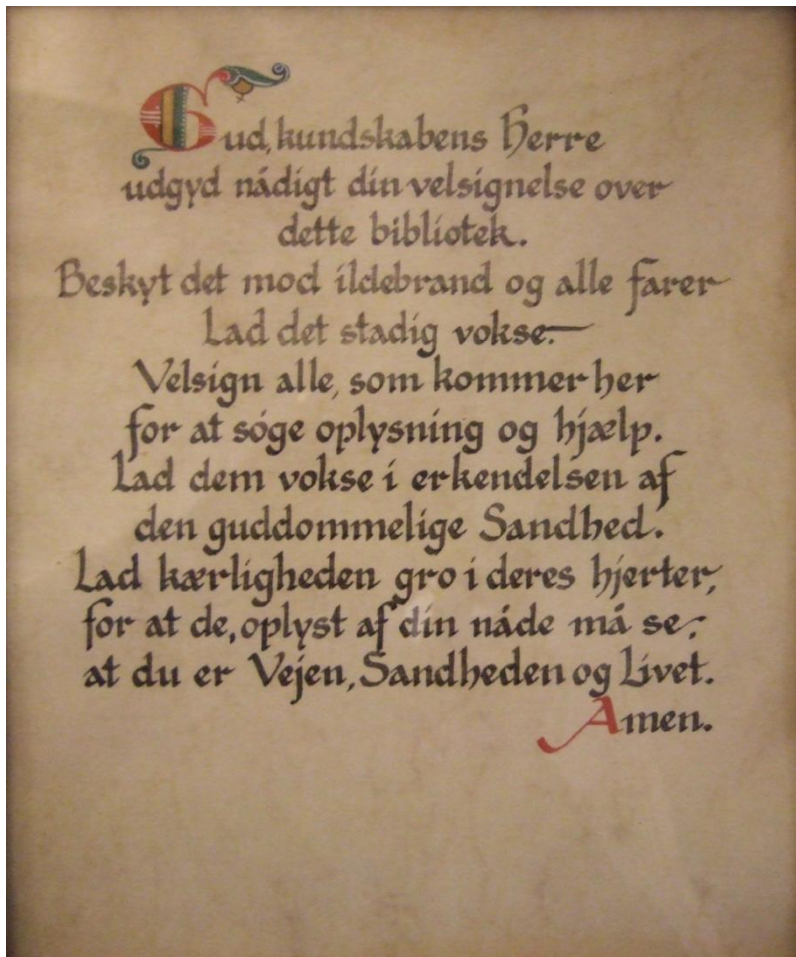 Gud, kundskabens Herre
udgyd nådigt din velsignelse over
dette bibliotek.
Beskyt det mod ildebrand og alle farer
Lad det stadig vokse.
Velsign alle, som kommer her
for at söge oplysning og hjælp.
Lad dem vokse i erkendelsen af
den guddommelige Sandhed.
Lad kærligheden gro i deres hjerter,
for at de, oplyst af din nåde må se,
at du er Vejen, Sandheden og Livet.
Amen.